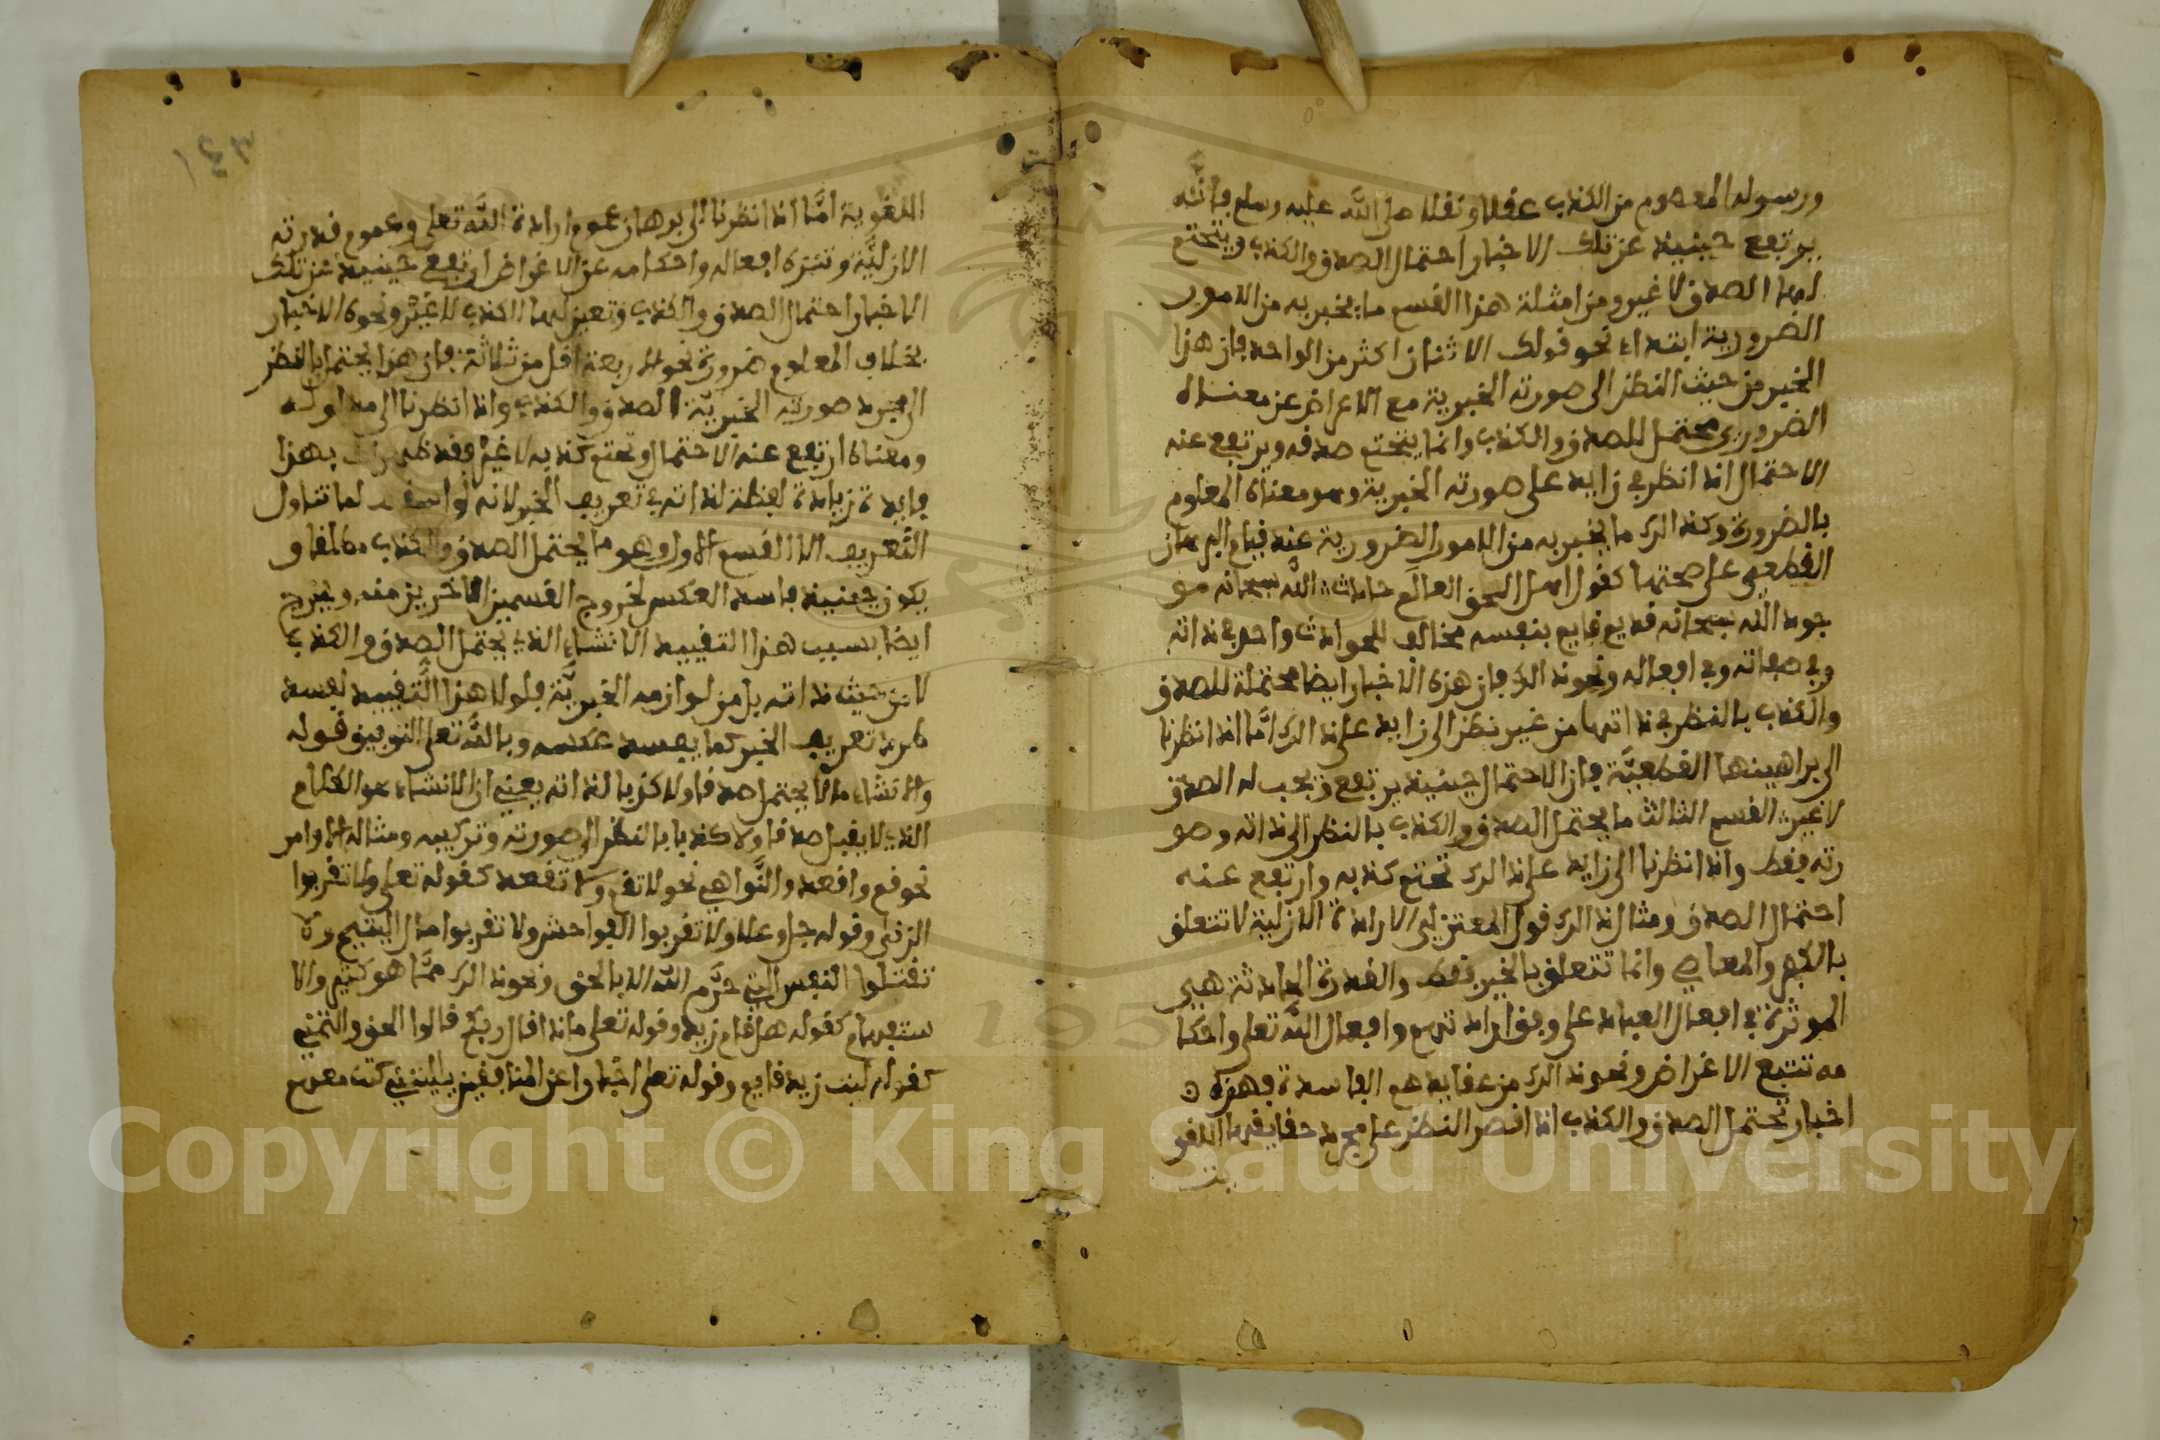 ورسوله المعصوم من الكذب عقلا ونقلا صلى الله عليه وسلم فإنه
يرتفع حينيذ عن تلك الاخبار احتمال الصدق والكذب ويتحتم
لها الصدق لا غير ومن امثلة هذا القسم ما يخبر به من الامور
الضرورية ابتداء نحو قولك الاثنان اكثر من الواحد فان هذا
الخبر من حيث النظر الى صورته الخبرية مع الاعراض عن معناه
الضروري محتمل للصدق والكذب وانما يتحتم صدقه ويرتفع عنه
الاحتمال اذا نظر في زايد على صورته الخبرية وهو معناه المعلوم
بالضرورة وكذلك ما يخبر به من الامور الضرورية عند قيام البرهان
القطعي على صحتها كقول اهل الحق العالم حادث الله سبحانه مو
جود الله سبحانه قديم قايم بنفسه مخالف للحوادث واحد في ذاته
وفي صفاته وفي افعاله ونحو ذلك فان هذه الاخبار ايضا محتملة للصدق
والكذب بالنظر في ذاتها من غير نظر الى زايد على ذلك امّا اذا نظرنا
الى براهينها القطعيّة فان الاحتمال حينيذ يرتفع ويجب له الصدق
لا غير القسم الثالث ما يحتمل الصدق والكذب بالنظر الى ذاته وصو
رته فقط واذا نظرنا الى زايد على ذلك تحتم كذبه وارتفع عنه
احتمال الصدق ومثال ذلك قول المعتزلي الارادة الازلية لا تتعلق
بالكفر والمعاصي وانما تتعلق بالخير فقط والقدرة الحادثة هي
الموثرة في افعال العباد على وفق ارادتهم وافعال الله تعلى واحكا
مه تتبع الاغراض ونحو ذلك من عقايدهم الفاسدة فهذه
اخبار تحتمل الصدق والكذب اذا قصر النظر على مجرد حقايقها اللغو
ية
اللغوية امّا اذا نظرنا الى برهان عموم ارادة الله تعلى وعموم قدرته
الازليّة وتنزه افعاله واحكامه عن الاغراض ارتفع حينيذ عن تلك
الاخبار احتمال الصدق والكذب وتعين لها الكذب لا غير ونحوه الاخبار
بخلاف المعلوم ضرورة نحو الاربعة اقل من ثلاثة فان هذا يحتمل بالنظر
الى مجرد صورته الخبريّة الصدق والكذب واذا نظرنا الى مدلوله
ومعناه ارتفع عنه الاحتمال وتحتم كذبه لا غير وقد ظهر لك بهذا
فايدة زيادة لفظة لذاته في تعريف الخبر لانه لو اسقط لما تناول
التّعريف الا القسم الاول وهو ما يحتمل الصدق والكذب مطلقا و
يكون حينيذ فاسد العكس لخروج القسمين الاخرين منه ويخرج
ايضا بسبب هذا التقييد الانشاء الذي يحتمل الصدق والكذب
لا من حيث ذاته بل من لوازمه الخبريّة فلولا هذا التّقييد لفسد
طرد تعريف الخبر كما يفسد عكسه وبالله تعلى التوفيق قوله
والانشاء ما لا يحتمل صدقا ولا كذبا لذاته يعني ان الانشاء هو الكلام
الذي لا يقبل صدقا ولا كذبا بالنظر الى صورته وتركيبه ومثاله الاوامر
نحو قم واقعد والنّواهي نحو لا تقم ولا تقعد كقوله تعلى ولا تقربوا
الزنى وقوله جل وعلا ولا تقربوا الفواحش ولا تقربوا مال اليتيم ولا
تقتلوا النفس التي حرّم الله الا بالحق ونحو ذلك ممّا هو كثير والا
ستفهام كقوله هل قام زيد وقوله تعلى ماذا قال ربكم قالوا الحق والتمني
كقوله ليت زيد قايم وقوله تعلى اخبارا عن المنافقين يا ليتني كنت معهم